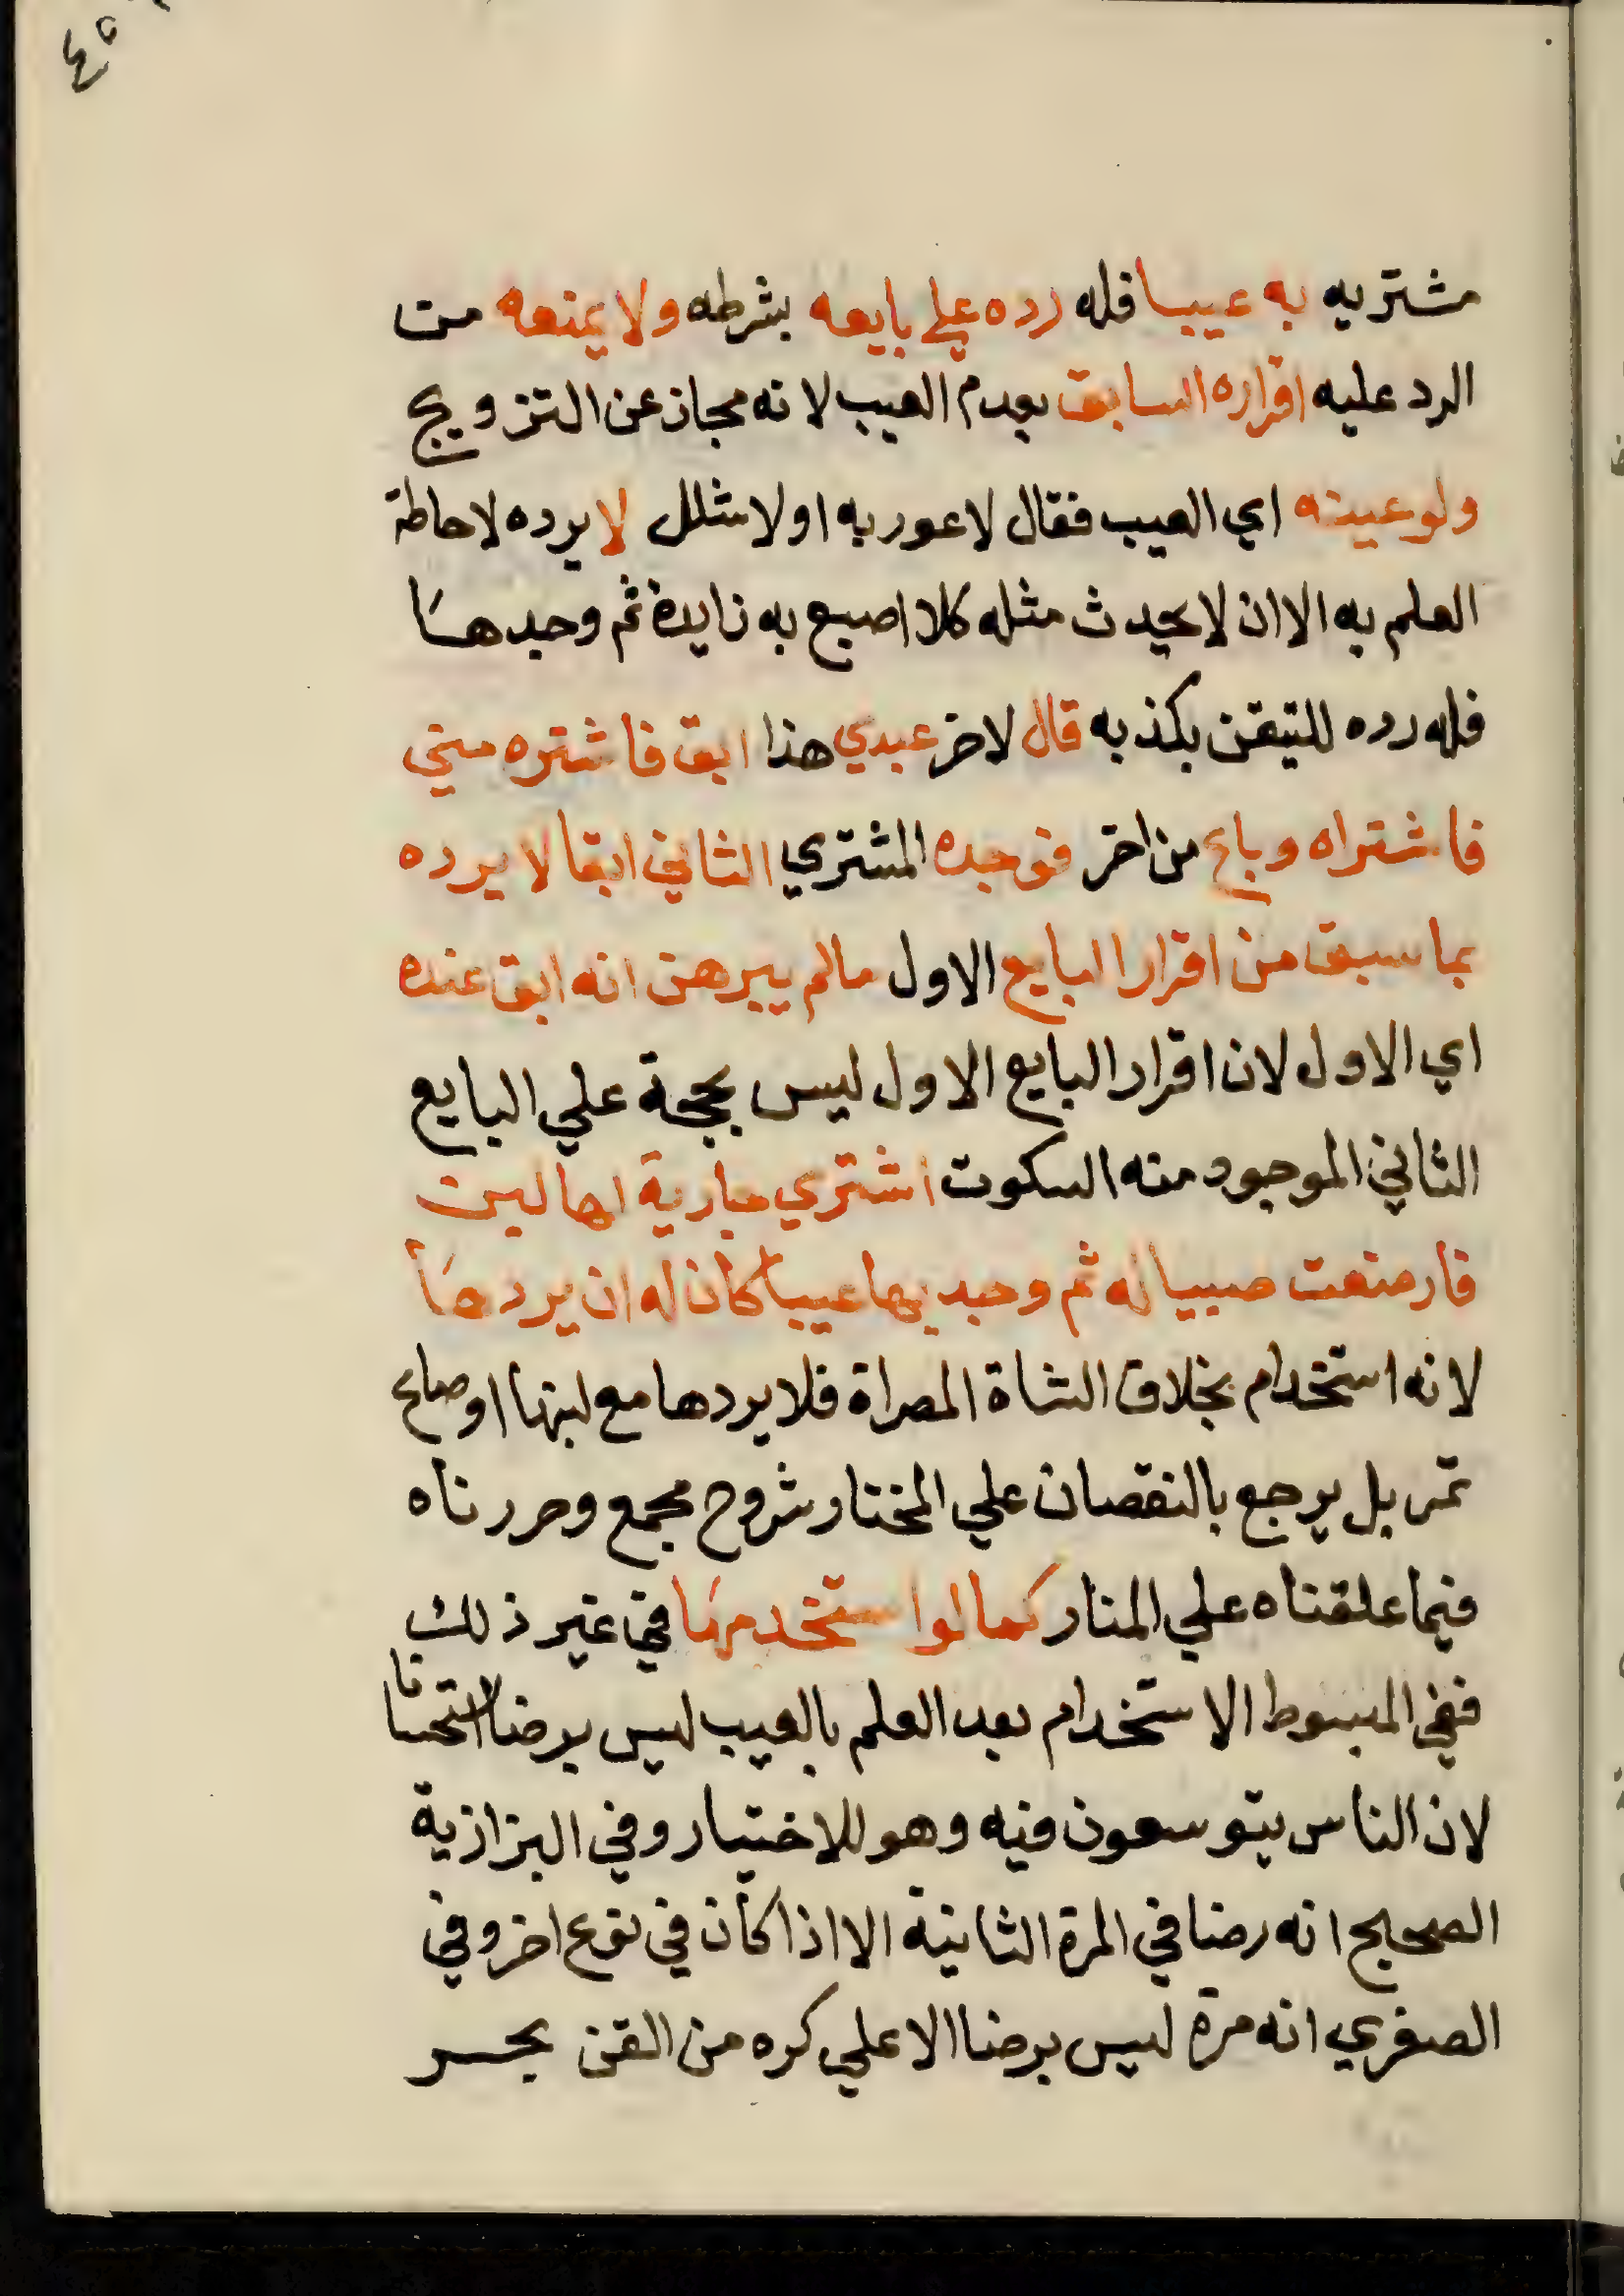 مشتريه به عيبا فله رده علي بايعه بشرطه ولا يمنعه من
الرد عليه اقراره السابق بعدم العيب لانه مجاز عن الترويج
ولو عينه اي العيب فقال لا عور به او لا شلل لا يرده لاحاطة
العلم به الا ان لا يحدث مثله كلا اصبع به زايدة ثم وجدها
فله رده للتيقن بكذبه قال لاخر عبدي هذا ابق فاشتره مني
فاشتراه وباع من اخر فوجده المشتري الثاني ابقا لا يرده
بما سبق من اقرار البايع الاول مالم يبرهن انه ابق عنده
اي الاول لان اقرار البايع الاول ليس بحجة علي البايع
الثاني الموجود منه السكوت اشتري جارية لها لبن
فارضعت صبيا له ثم وجد بها عيبا كان له ان يردها
لانه استخدام بخلاف الشاة المصراة فلا يردها مع لبنها او صاع
تمر بل يرجع بالنقصان علي المختار شروح مجمع وحررناه
فيما علقناه علي المنار كما لو استخدمها في غير ذلك
ففي المبسوط الاستخدام بعد العلم بالعيب ليس برضا استحسانا
لان الناس يتوسعون فيه وهو للاختيار وفي البزازية
الصحيح انه رضا في المرة الثانية الا اذا كان في نوع اخر وفي
الصغري انه مرة ليس برضا الا علي كره من القن بحر